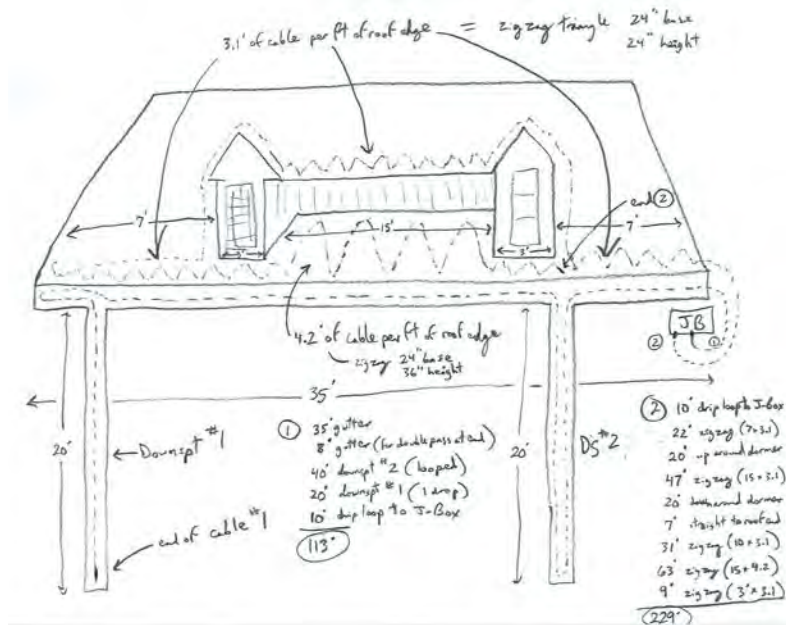 3.1' of cable per ft of roof edge = zigzag triangle 24" base
24" height
end ②
7'
15'
7'
3'
3'
4.2' of cable per ft of roof edge
zigzag 24" base
36" height
JB
②
①
35'
20'
20'
Downspt #1
DS #2
end of cable #1
① 35' gutter
8' gutter (for double pass at end)
40' downspt #2 (looped)
20' downspt #1 (1 drop)
10' drip loop to J-Box
113'
② 10' drip loop to J-Box
22' zigzag (7×3.1)
20' up around dormer
47' zigzag (15×3.1)
20' down around dormer
7' straight to roof end
31' zigzag (10×3.1)
63' zigzag (15×4.2)
9' zigzag (3'×3.1)
229'